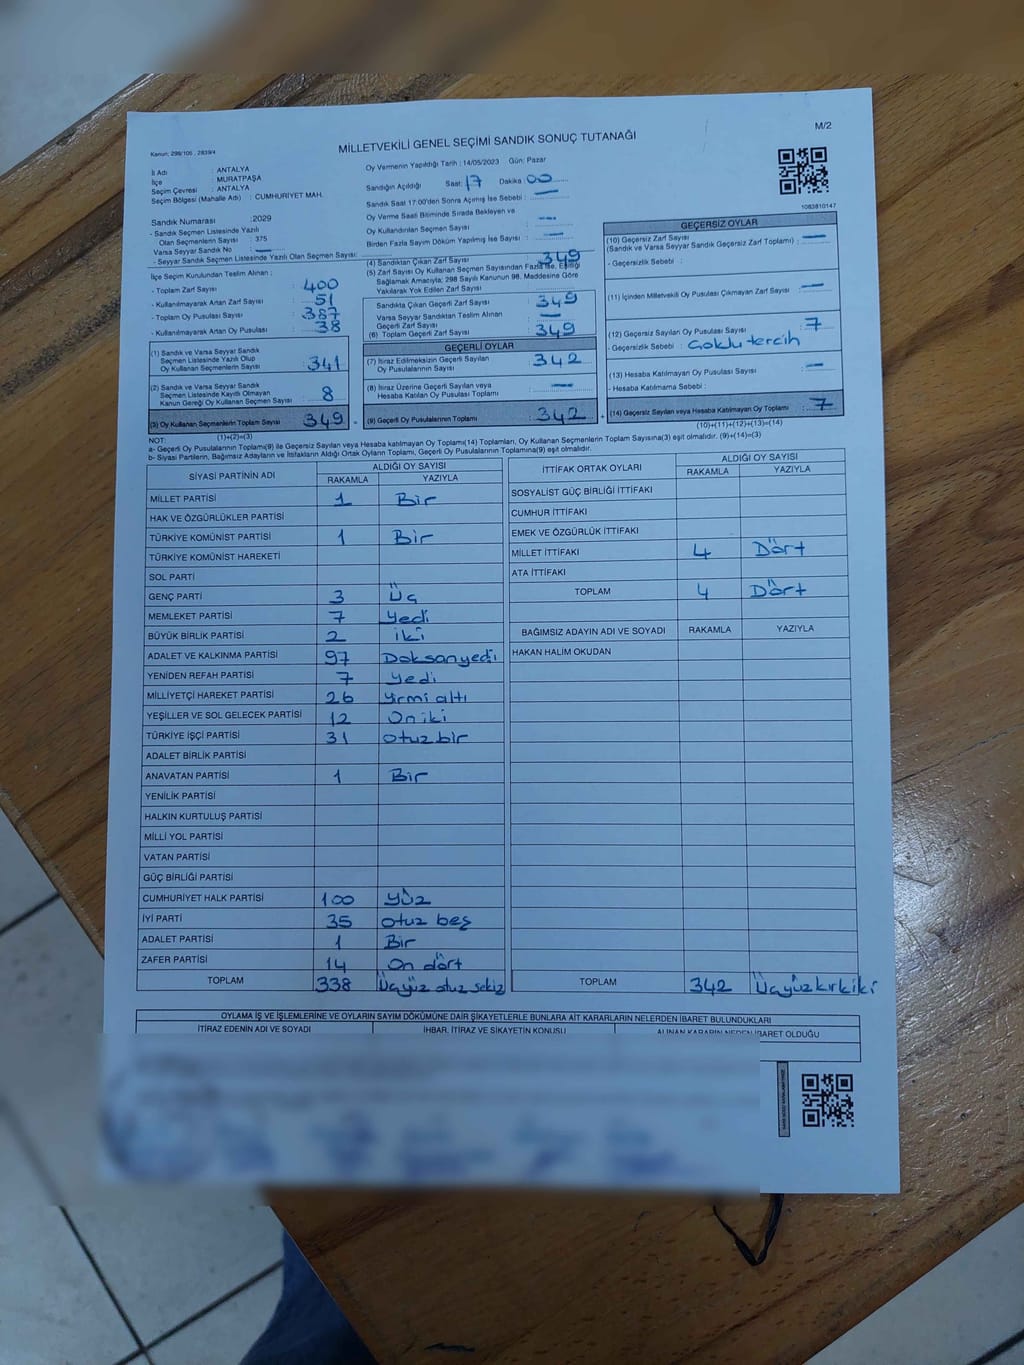 M/2
Kanun: 298/105 , 2839/4
MİLLETVEKİLİ GENEL SEÇİMİ SANDIK SONUÇ TUTANAĞI
İl Adı : ANTALYA
İlçe : MURATPAŞA
Seçim Çevresi : ANTALYA
Seçim Bölgesi (Mahalle Adı) : CUMHURİYET MAH.
Sandık Numarası :2029
- Sandık Seçmen Listesinde Yazılı
Olan Seçmenlerin Sayısı : 375
Varsa Seyyar Sandık No : —
- Seyyar Sandık Seçmen Listesinde Yazılı Olan Seçmenlerin Sayısı:
Oy Vermenin Yapıldığı Tarih : 14/05/2023 Gün: Pazar
Sandığın Açıldığı Saat: 17 Dakika 00
Sandık Saat 17:00'den Sonra Açılmış İse Sebebi : —
Oy Verme Saati Bitiminde Sırada Bekleyen ve
Oy Kullandırılan Seçmen Sayısı : —
Birden Fazla Sayım Döküm Yapılmış İse Sayısı : —
1083810147
İlçe Seçim Kurulundan Teslim Alınan ;
- Toplam Zarf Sayısı : 400
- Kullanılmayarak Artan Zarf Sayısı : 51
- Toplam Oy Pusulası Sayısı : 387
- Kullanılmayarak Artan Oy Pusulası : 38
(1) Sandık ve Varsa Seyyar Sandık
Seçmen Listesinde Yazılı Olup
Oy Kullanan Seçmenlerin Sayısı : 341
(2) Sandık ve Varsa Seyyar Sandık
Seçmen Listesinde Kayıtlı Olmayan
Kanun Gereği Oy Kullanan Seçmen Sayısı : 8
(3) Oy Kullanan Seçmenlerin Toplam Sayısı : 349
(1)+(2)=(3)
(4) Sandıktan Çıkan Zarf Sayısı : 349
(5) Zarf Sayısı Oy Kullanan Seçmen Sayısından Fazla İse, Eşitliği
Sağlamak Amacıyla; 298 Sayılı Kanunun 98. Maddesine Göre
Yakılarak Yok Edilen Zarf Sayısı :
Sandıkta Çıkan Geçerli Zarf Sayısı : 349
Varsa Seyyar Sandıktan Teslim Alınan
Geçerli Zarf Sayısı : —
(6) Toplam Geçerli Zarf Sayısı : 349
GEÇERLİ OYLAR
(7) İtiraz Edilmeksizin Geçerli Sayılan
Oy Pusulalarının Sayısı : 342
(8) İtiraz Üzerine Geçerli Sayılan veya
Hesaba Katılan Oy Pusulası Toplamı : —
(9) Geçerli Oy Pusulalarının Toplamı : 342
GEÇERSİZ OYLAR
(10) Geçersiz Zarf Sayısı
(Sandık ve Varsa Seyyar Sandık Geçersiz Zarf Toplamı) : —
- Geçersizlik Sebebi :
(11) İçinden Milletvekili Oy Pusulası Çıkmayan Zarf Sayısı : —
(12) Geçersiz Sayılan Oy Pusulası Sayısı : 7
- Geçersizlik Sebebi : Çoklu tercih
(13) Hesaba Katılmayan Oy Pusulası Sayısı : —
- Hesaba Katılmama Sebebi :
(14) Geçersiz Sayılan veya Hesaba Katılmayan Oy Toplamı : 7
(10)+(11)+(12)+(13)=(14)
NOT:
a- Geçerli Oy Pusulalarının Toplamı(9) ile Geçersiz Sayılan veya Hesaba katılmayan Oy Toplamı(14) Toplamları, Oy Kullanan Seçmenlerin Toplam Sayısına(3) eşit olmalıdır. (9)+(14)=(3)
b- Siyasi Partilerin, Bağımsız Adayların ve İttifakların Aldığı Ortak Oyların Toplamı, Geçerli Oy Pusulalarının Toplamına(9) eşit olmalıdır.
SİYASİ PARTİNİN ADI ALDIĞI OY SAYISI
RAKAMLA YAZIYLA
MİLLET PARTİSİ 1 Bir
HAK VE ÖZGÜRLÜKLER PARTİSİ
TÜRKİYE KOMÜNİST PARTİSİ 1 Bir
TÜRKİYE KOMÜNİST HAREKETİ
SOL PARTİ
GENÇ PARTİ 3 Üç
MEMLEKET PARTİSİ 7 Yedi
BÜYÜK BİRLİK PARTİSİ 2 iki
ADALET VE KALKINMA PARTİSİ 97 Doksanyedi
YENİDEN REFAH PARTİSİ 7 Yedi
MİLLİYETÇİ HAREKET PARTİSİ 26 Yirmi altı
YEŞİLLER VE SOL GELECEK PARTİSİ 12 On iki
TÜRKİYE İŞÇİ PARTİSİ 31 otuz bir
ADALET BİRLİK PARTİSİ
ANAVATAN PARTİSİ 1 Bir
YENİLİK PARTİSİ
HALKIN KURTULUŞ PARTİSİ
MİLLİ YOL PARTİSİ
VATAN PARTİSİ
GÜÇ BİRLİĞİ PARTİSİ
CUMHURİYET HALK PARTİSİ 100 Yüz
İYİ PARTİ 35 otuz beş
ADALET PARTİSİ 1 Bir
ZAFER PARTİSİ 14 On dört
TOPLAM 338 Üçyüz otuz sekiz
İTTİFAK ORTAK OYLARI ALDIĞI OY SAYISI
RAKAMLA YAZIYLA
SOSYALİST GÜÇ BİRLİĞİ İTTİFAKI
CUMHUR İTTİFAKI
EMEK VE ÖZGÜRLÜK İTTİFAKI
MİLLET İTTİFAKI 4 Dört
ATA İTTİFAKI
TOPLAM 4 Dört
BAĞIMSIZ ADAYIN ADI VE SOYADI RAKAMLA YAZIYLA
HAKAN HALİM OKUDAN
TOPLAM 342 Üçyüzkırkiki
OYLAMA İŞ VE İŞLEMLERİNE VE OYLARIN SAYIM DÖKÜMÜNE DAİR ŞİKAYETLERLE BUNLARA AİT KARARLARIN NELERDEN İBARET BULUNDUKLARI
İTİRAZ EDENİN ADI VE SOYADI İHBAR, İTİRAZ VE ŞİKAYETİN KONUSU ALINAN KARARIN NEDEN İBARET OLDUĞU